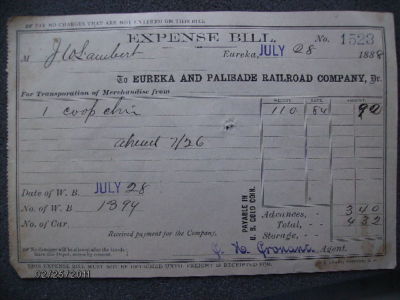 PAY NO CHARGES THAT ARE NOT ENTERED ON THIS BILL
EXPENSE BILL. No. 1523
M J W Lambert Eureka, JULY 28 1888
To EUREKA AND PALISADE RAILROAD COMPANY, Dr.
For Transportation of Merchandise from
WEIGHT RATE AMOUNT
1 coop 110 84 92
ahead 7/26
Date of W. B. JULY 28
No. of W. B. 1394
No. of Car
PAYABLE IN U. S. GOLD COIN.
Advances, - 3 40
Total, - - 4 32
Storage, -
Received payment for the Company,
Agent.
No Consignee will be
02/25/2011
THIS EXPENSE BILL MUST NOT BE DETACHED UNTIL FREIGHT IS RECEIPTED FOR.